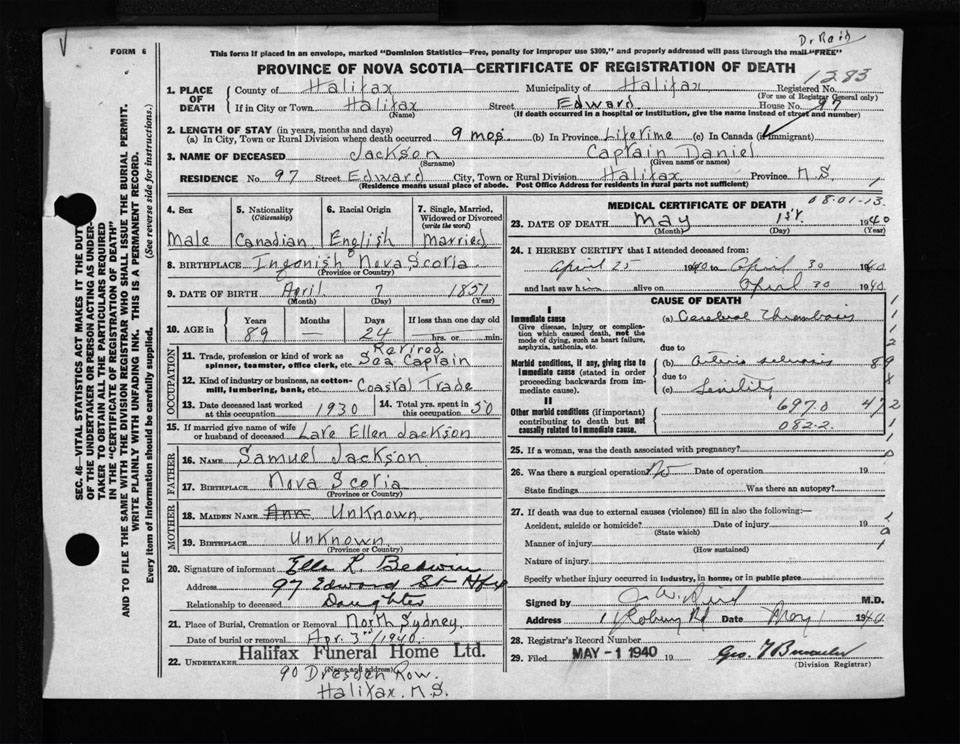 Dr Reid
FORM 6
This form if placed in an envelope, marked "Dominion Statistics—Free, penalty for improper use $300," and properly addressed will pass through the mail "FREE"
PROVINCE OF NOVA SCOTIA—CERTIFICATE OF REGISTRATION OF DEATH
1283
1. PLACE OF DEATH
County of Halifax Municipality of Halifax Registered No.
(For use of Registrar General only)
If in City or Town Halifax Street Edward House No. 97
(Name) (If death occurred in a hospital or institution, give the name instead of street and number)
2. LENGTH OF STAY (in years, months and days)
(a) In City, Town or Rural Division where death occurred 9 mos. (b) In Province Lifetime (c) In Canada (if immigrant)
3. NAME OF DECEASED Jackson Captain Daniel
(Surname) (Given name or names)
RESIDENCE No. 97 Street Edward City, Town or Rural Division Halifax Province N.S.
(Residence means usual place of abode. Post Office Address for residents in rural parts not sufficient)
4. Sex 5. Nationality (Citizenship) 6. Racial Origin 7. Single, Married, Widowed or Divorced (write the word)
Male Canadian English Married
8. BIRTHPLACE Ingonish Nova Scotia
(Province or Country)
9. DATE OF BIRTH April 7 1851
(Month) (Day) (Year)
10. AGE in Years Months Days If less than one day old
89 — 24 hrs. or min.
OCCUPATION
11. Trade, profession or kind of work as spinner, teamster, office clerk, etc. Retired Sea Captain
12. Kind of industry or business, as cotton-mill, lumbering, bank, etc. Coastal Trade
13. Date deceased last worked at this occupation 1930 14. Total yrs. spent in this occupation 50
15. If married give name of wife or husband of deceased Late Ellen Jackson
FATHER
16. Name Samuel Jackson
17. Birthplace Nova Scotia
(Province or Country)
MOTHER
18. Maiden Name Ann Unknown
19. Birthplace Unknown
(Province or Country)
20. Signature of informant Ella R.
Address 97 Edward St Hfx
Relationship to deceased Daughter
21. Place of Burial, Cremation or Removal North Sydney
Date of burial or removal Apr. 3rd/1940
22. Undertaker Halifax Funeral Home Ltd.
(Name and address)
90 Dresden Row.
Halifax, N.S.
MEDICAL CERTIFICATE OF DEATH 08-01-13.
23. DATE OF DEATH May 1st. 1940
(Month) (Day) (Year)
24. I HEREBY CERTIFY that I attended deceased from:
April 25 1940 to April 30 1940
and last saw h alive on April 30 1940
CAUSE OF DEATH
I
Immediate cause
Give disease, injury or complication which caused death, not the mode of dying, such as heart failure, asphyxia, asthenia, etc.
(a) Cerebral Thrombosis
due to
Morbid conditions, if any, giving rise to immediate cause (stated in order proceeding backwards from immediate cause).
(b)
due to
(c) Senility
II
Other morbid conditions (if important) contributing to death but not causally related to immediate cause.
697.0 472
082.2
25. If a woman, was the death associated with pregnancy?
26. Was there a surgical operation? No Date of operation 19
State findings Was there an autopsy?
27. If death was due to external causes (violence) fill in also the following:—
Accident, suicide or homicide? Date of injury 19
(State which)
Manner of injury
(How sustained)
Nature of injury
Specify whether injury occurred in industry, in home, or in public place
Signed by M.D.
Address Coburg Rd Date May 1 1940
28. Registrar's Record Number
29. Filed MAY -1 1940 19 Geo.
(Division Registrar)
SEC. 46—VITAL STATISTICS ACT MAKES IT THE DUTY
OF THE UNDERTAKER OR PERSON ACTING AS UNDERTAKER TO OBTAIN ALL THE PARTICULARS REQUIRED
IN THE "CERTIFICATE OF REGISTRATION OF DEATH"
AND TO FILE THE SAME WITH THE DIVISION REGISTRAR WHO SHALL ISSUE THE BURIAL PERMIT.
WRITE PLAINLY WITH UNFADING INK. THIS IS A PERMANENT RECORD.
Every item of information should be carefully supplied. (See reverse side for instructions.)